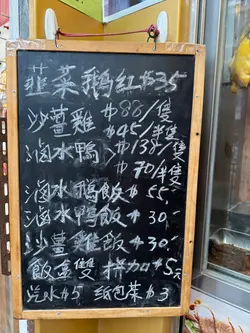 韮菜鵝紅$35
沙薑雞$88/隻
$45/半隻
滷水鴨$138/隻
$70/半隻
滷水鵝飯$55.
滷水鴨飯$30.
沙薑雞飯$30.
飯盒雙拼加$5元
汽水$5 紙包茶$3